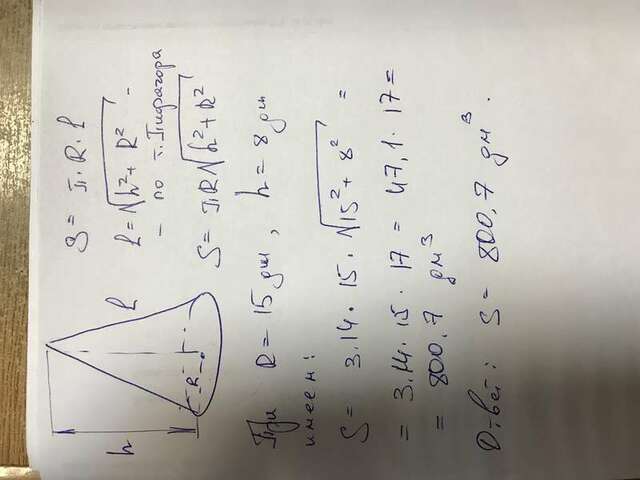 S = π · R · l
h
l
l = √h² + R² -
- по т. Пифагора
R
S = πR√h² + R²
При R = 15 дм, h = 8 дм
имеем:
S = 3.14 · 15 · √15² + 8² =
= 3.14 · 15 · 17 = 47,1 · 17 =
= 800,7 дм³
Ответ: S = 800,7 дм³.